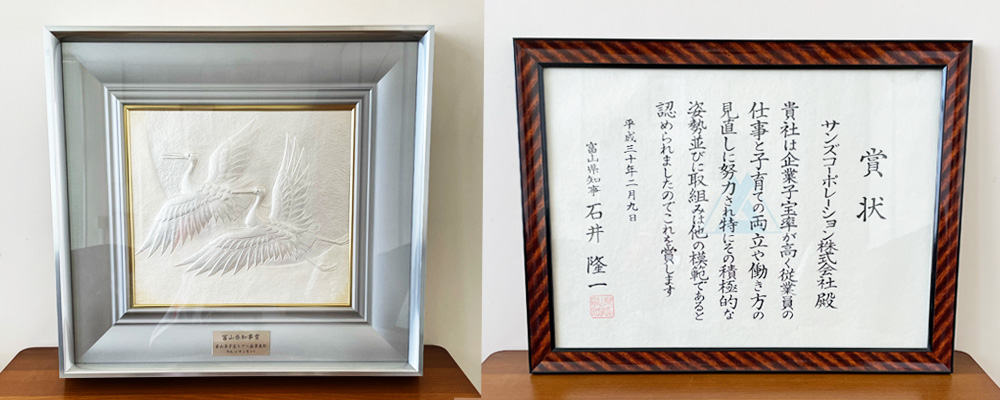 富山県知事賞
賞状
サンズコーポレーション株式会社 殿
貴社は企業子宝率が高く従業員の
仕事と子育ての両立や働き方の
見直しに努力され特にその積極的な
姿勢並びに取組みは他の模範であると
認められましたのでこれを賞します
平成三十年二月九日
富山県知事 石井隆一